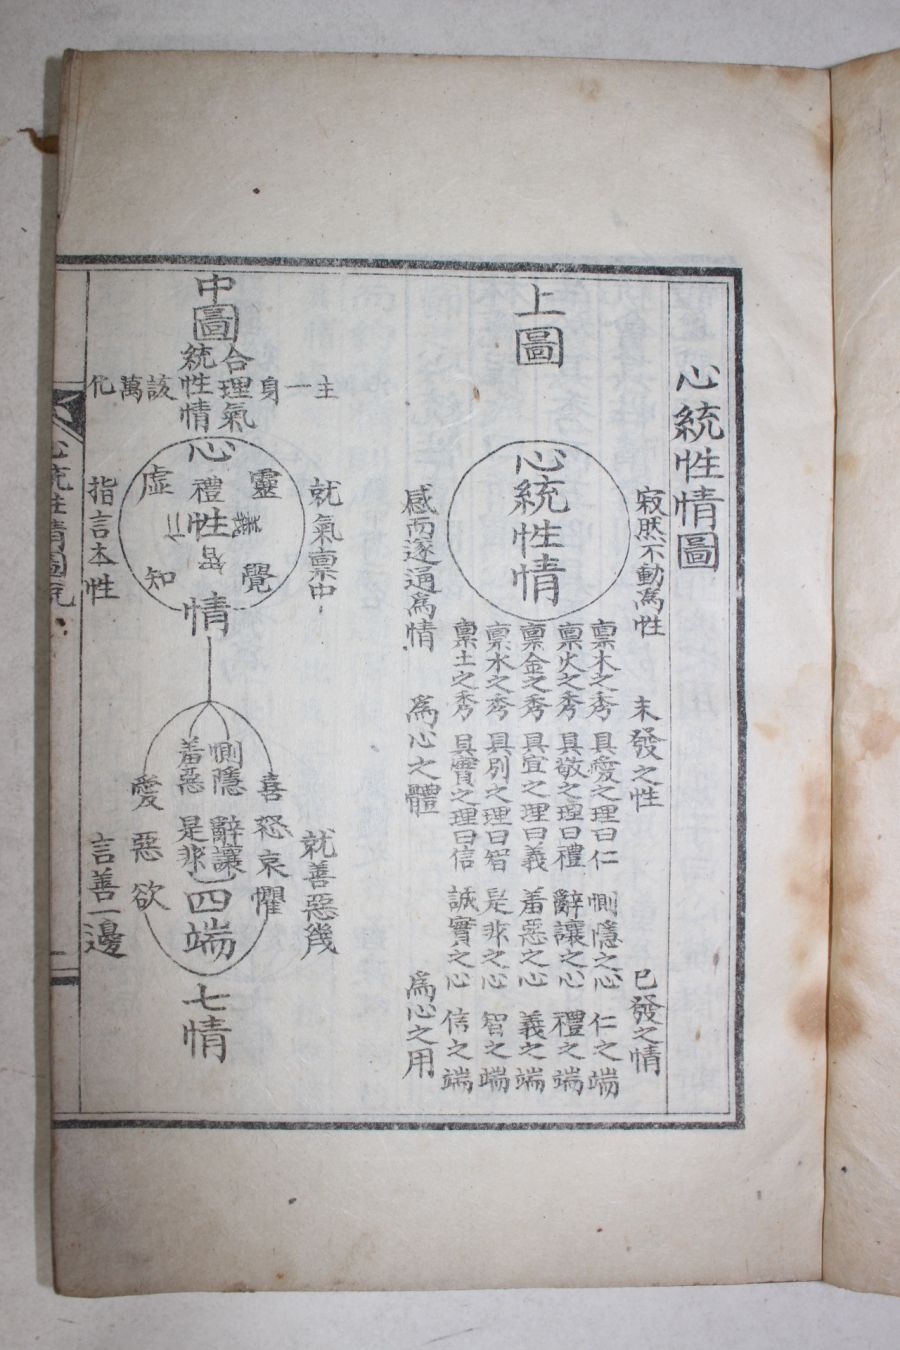 心統性情圖
上圖
心統性情
寂然不動爲性
未發之性
已發之情
稟木之秀 具愛之理曰仁 惻隱之心 仁之端
稟火之秀 具敬之理曰禮 辭讓之心 禮之端
稟金之秀 具宜之理曰義 羞惡之心 義之端
稟水之秀 具別之理曰智 是非之心 智之端
稟土之秀 具實之理曰信 誠實之心 信之端
感而遂通爲情
爲心之體
爲心之用
中圖
合理氣
統性情
主一身
該萬化
心
靈
覺
禮
性
義
仁
智
虛
知
情
就氣稟中
指言本性
惻隱
辭讓
羞惡
是非
四端
喜怒哀懼
愛惡欲
七情
就善惡幾
言善一邊
心統性情圖說